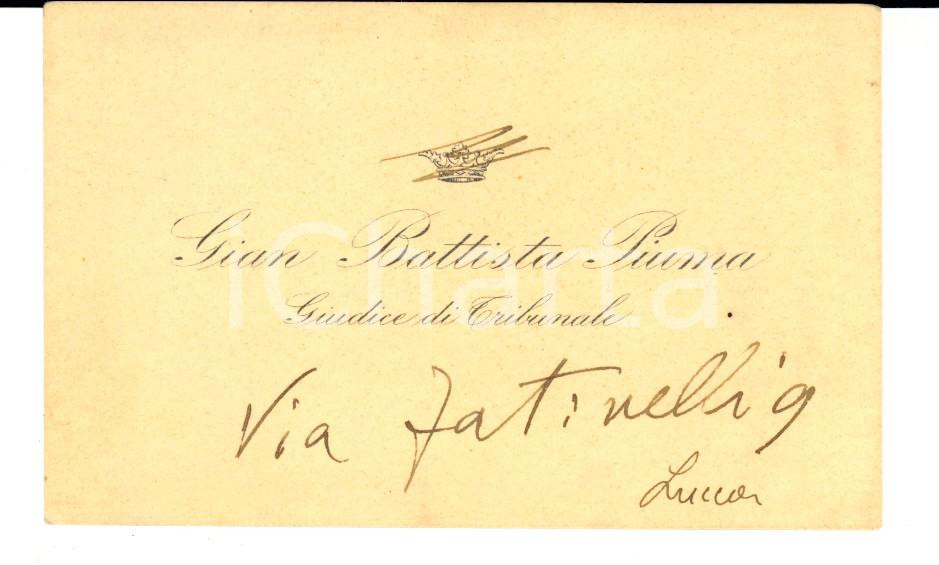 Gian Battista Piuma
Giudice di Tribunale
iCharta
Via Fatinelli 9
Lucca